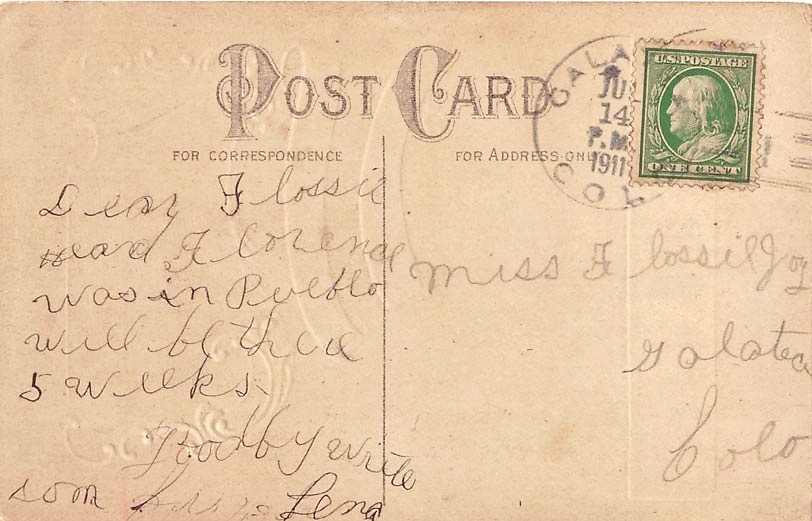 POST CARD
FOR CORRESPONDENCE
FOR ADDRESS ONLY
GALA
JU
14
P.M.
1911
COL
U.S. POSTAGE
ONE CENT
Dear Flossie
Heard Florence
was in Pueblo
will be there
5 weeks.
Goodby write
som Lena
Miss Flossie Joy
Galatea
Colo